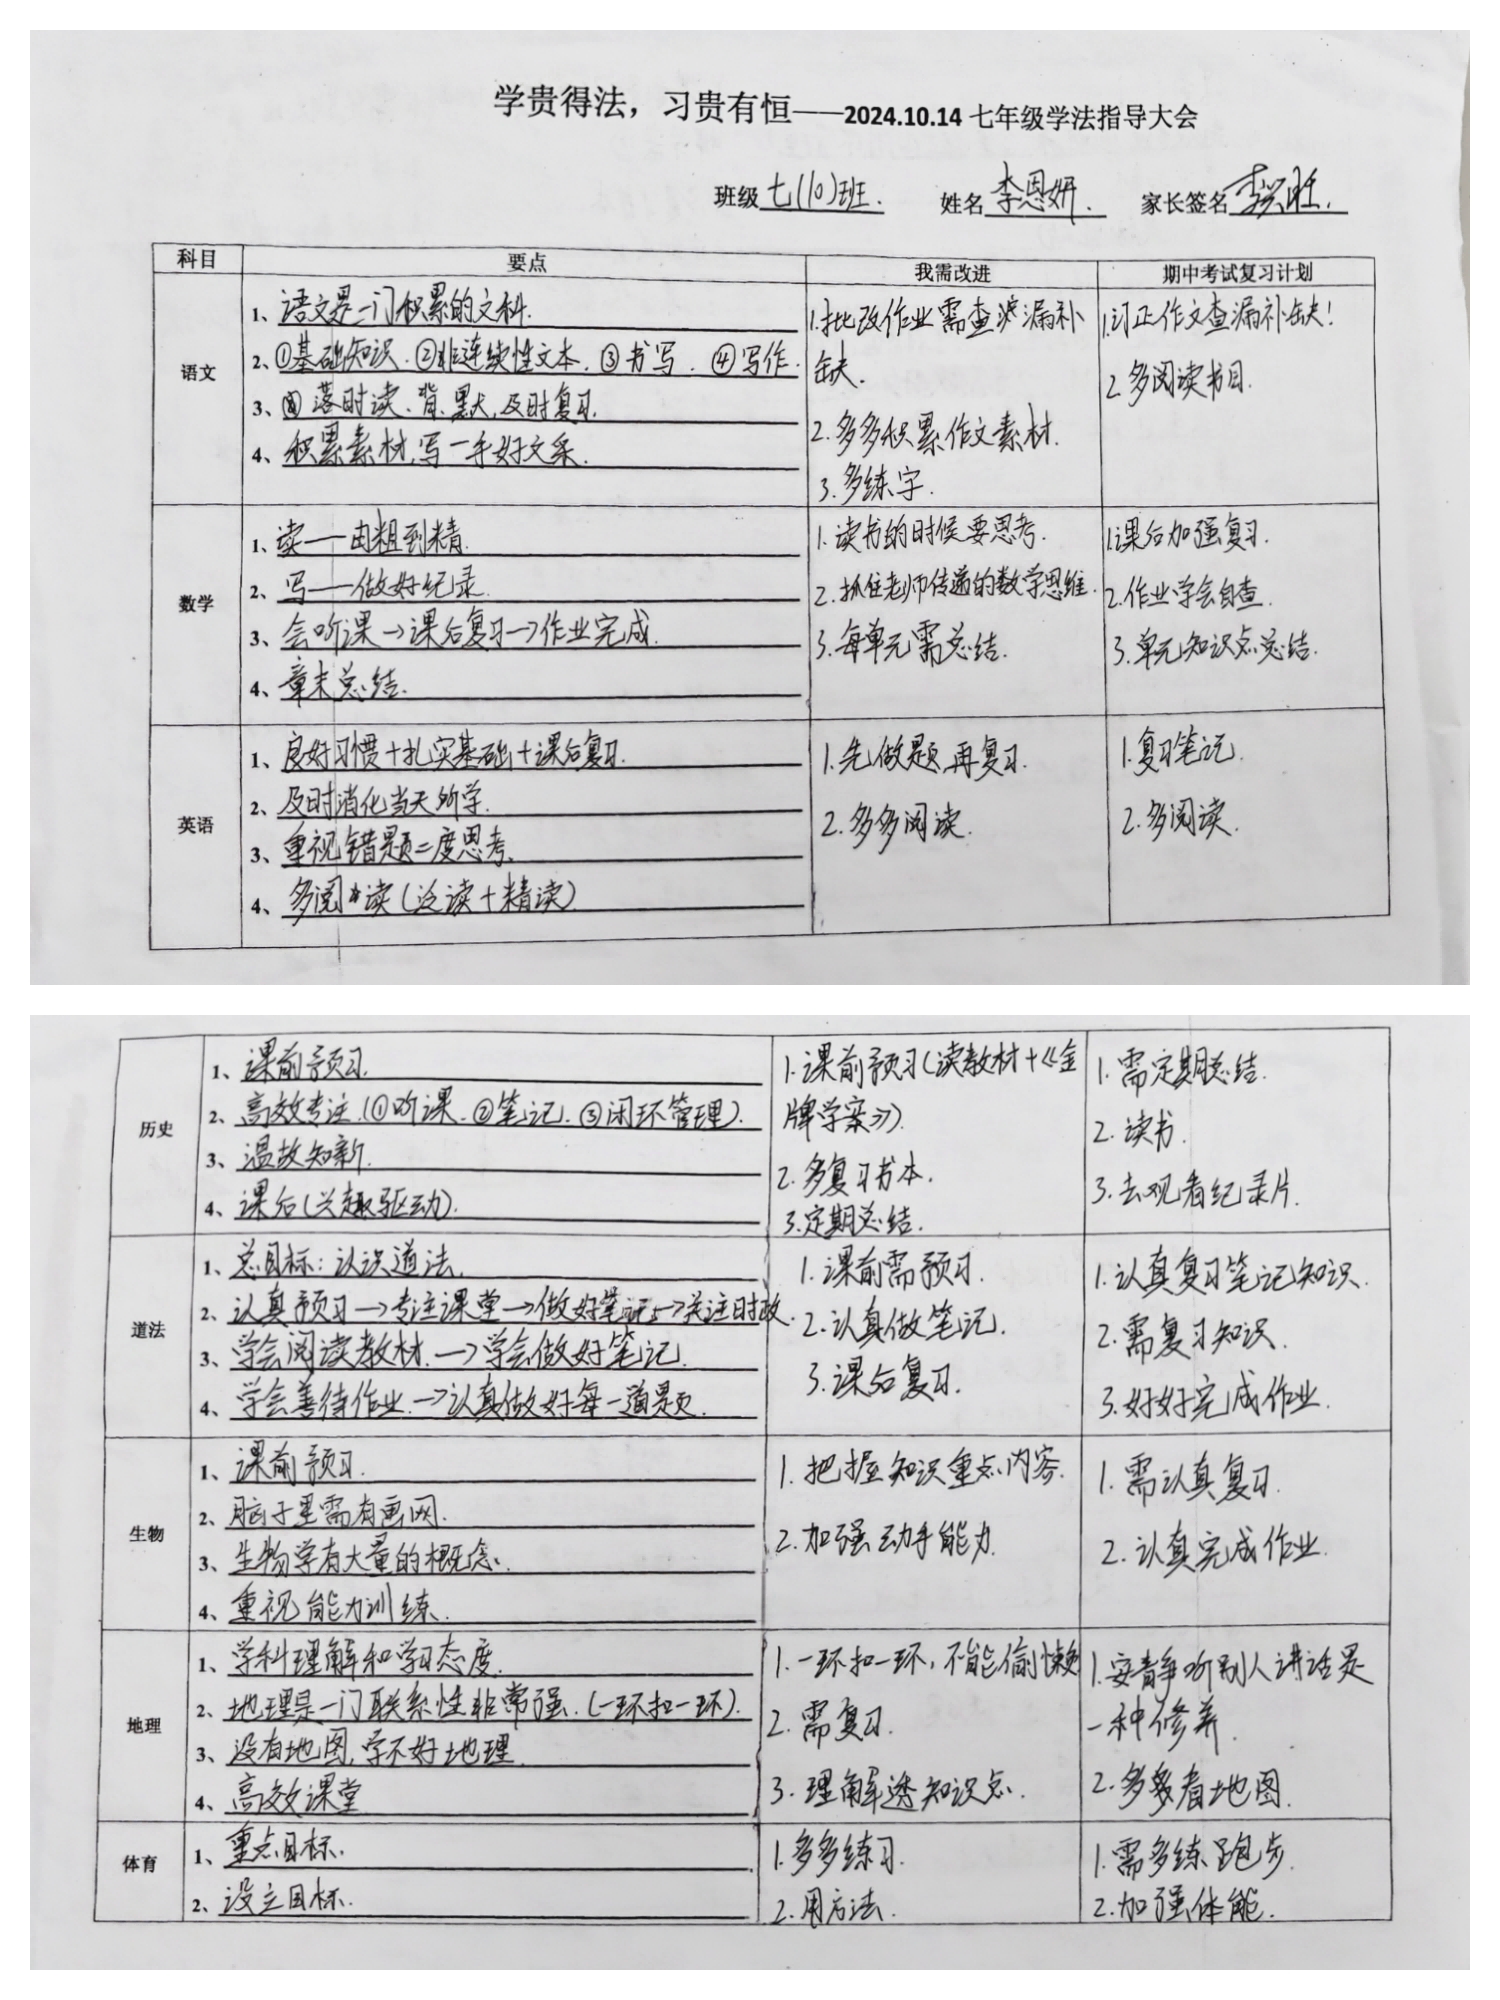 学贵得法，习贵有恒——2024.10.14 七年级学法指导大会
班级 七(10)班. 姓名 李恩妍. 家长签名
科目 要点 我需改进 期中考试复习计划
语文
1、语文是一门积累的文科.
2、①基础知识.②非连续性文本.③书写.④写作.
3、落时读.背.默,及时复习.
4、积累素材,写一手好文采.
1.批改作业需查漏补
缺.
2.多多积累作文素材.
3.多练字.
1.订正作文查漏补缺!
2.多阅读书目.
数学
1、读——由粗到精.
2、写——做好纪录.
3、会听课→课后复习→作业完成.
4、章末总结.
1.读书的时候要思考.
2.抓住老师传递的数学思维.
3.每单元需总结.
1.课后加强复习.
2.作业学会自查.
3.单元知识点总结.
英语
1、良好习惯+扎实基础+课后复习.
2、及时消化当天所学.
3、重视错题二度思考.
4、多阅读(泛读+精读)
1.先做题,再复习.
2.多多阅读.
1.复习笔记.
2.多阅读.
历史
1、课前预习.
2、高效专注.(①听课.②笔记.③闭环管理).
3、温故知新.
4、课后(兴趣驱动).
1.课前预习(读教材+《金
牌学案》).
2.多复习书本.
3.定期总结.
1.需定期总结.
2.读书.
3.去观看纪录片.
道法
1、总目标:认识道法.
2、认真预习→专注课堂→做好笔记→关注时政.
3、学会阅读教材.→学会做好笔记.
4、学会善待作业.→认真做好每一道题.
1.课前需预习.
2.认真做笔记.
3.课后复习.
1.认真复习笔记知识.
2.需复习知识.
3.好好完成作业.
生物
1、课前预习.
2、脑子里需有画网.
3、生物学有大量的概念.
4、重视能力训练.
1.把握知识重点内容.
2.加强动手能力.
1.需认真复习.
2.认真完成作业.
地理
1、学科理解和学习态度.
2、地理是一门联系性非常强.(一环扣一环).
3、没有地图,学不好地理.
4、高效课堂
1.一环扣一环,不能偷懒
2.需复习.
3.理解透知识点.
1.安静听别人讲话是
一种修养.
2.多多看地图.
体育
1、重点目标.
2、设立目标.
1.多多练习.
2.用方法.
1.需多练跑步.
2.加强体能.